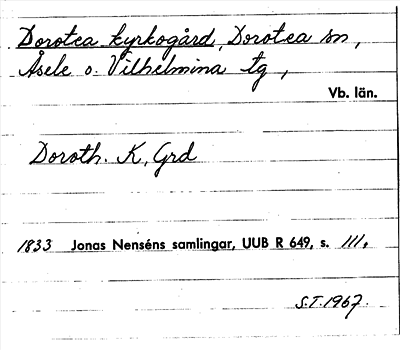 Dorotea kyrkogård, Dorotea sn,
Åsele o. Vilhelmina tg,
Vb. län.
Doroth. K, Grd
1833 Jonas Nenséns samlingar, UUB R 649, s. 111.
S.T. 1967.